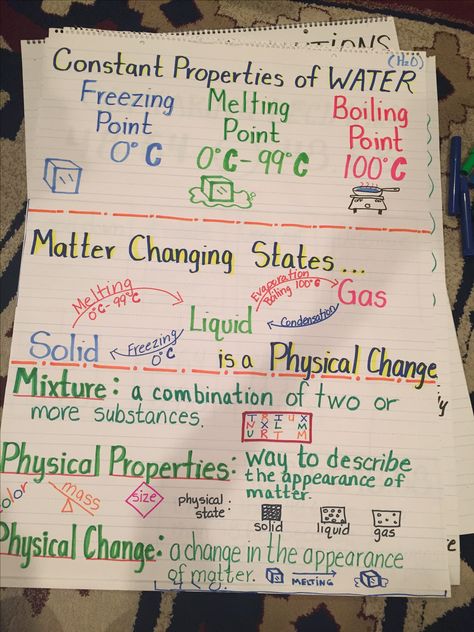 (H₂O)
Constant Properties of WATER
Freezing Point 0°C
Melting Point 0°C-99°C
Boiling Point 100°C
Matter Changing States...
Melting 0°C-99°C
Evaporation
Boiling 100°C
Gas
Liquid
Condensation
Solid
Freezing 0°C
is a Physical Change
Mixture: a combination of two or
more substances.
T R I U X
N X L M
U R T M
Physical Properties: way to describe
the appearance of
matter.
color
mass
size
physical state:
solid
liquid
gas
Physical Change: a change in the appearance
of matter.
MELTING